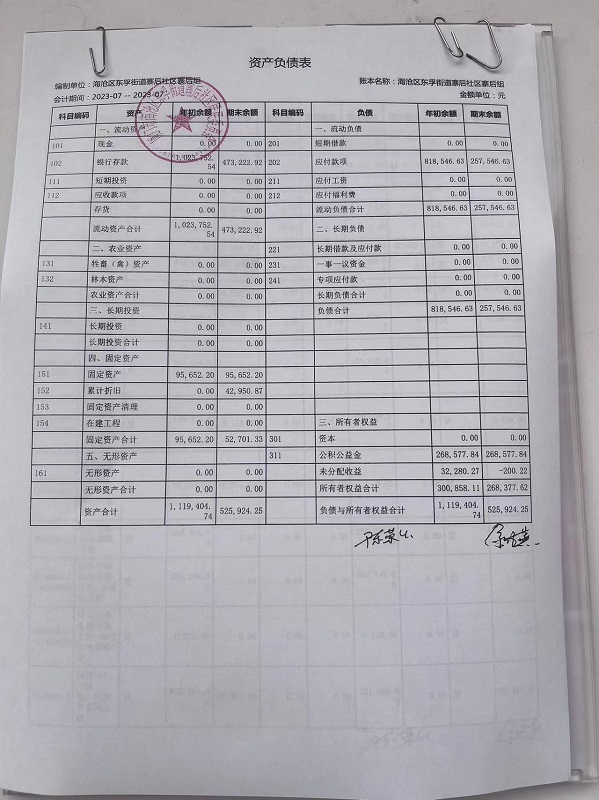 资产负债表
编制单位：海沧区东孚街道寨后社区寨后组 账本名称：海沧区东孚街道寨后社区寨后组
会计期间：2023-07 -- 2023-07 金额单位：元
科目编码 资产 年初余额 期末余额 科目编码 负债 年初余额 期末余额
一、流动资产 一、流动负债
101 现金 0.00 0.00 201 短期借款 0.00 0.00
102 银行存款 1,023,752.54 473,222.92 202 应付款项 818,546.63 257,546.63
111 短期投资 0.00 0.00 211 应付工资 0.00 0.00
112 应收款项 0.00 0.00 212 应付福利费 0.00 0.00
存货 0.00 0.00 流动负债合计 818,546.63 257,546.63
流动资产合计 1,023,752.54 473,222.92 二、长期负债
二、农业资产 221 长期借款及应付款 0.00 0.00
131 牲畜（禽）资产 0.00 0.00 231 一事一议资金 0.00 0.00
132 林木资产 0.00 0.00 241 专项应付款 0.00 0.00
农业资产合计 0.00 0.00 长期负债合计 0.00 0.00
三、长期投资 负债合计 818,546.63 257,546.63
141 长期投资 0.00 0.00
长期投资合计 0.00 0.00
四、固定资产
151 固定资产 95,652.20 95,652.20
152 累计折旧 0.00 42,950.87
153 固定资产清理 0.00 0.00
154 在建工程 0.00 0.00 三、所有者权益
固定资产合计 95,652.20 52,701.33 301 资本 0.00 0.00
五、无形资产 311 公积公益金 268,577.84 268,577.84
161 无形资产 0.00 0.00 未分配收益 32,280.27 -200.22
无形资产合计 0.00 0.00 所有者权益合计 300,858.11 268,377.62
资产合计 1,119,404.74 525,924.25 负债与所有者权益合计 1,119,404.74 525,924.25